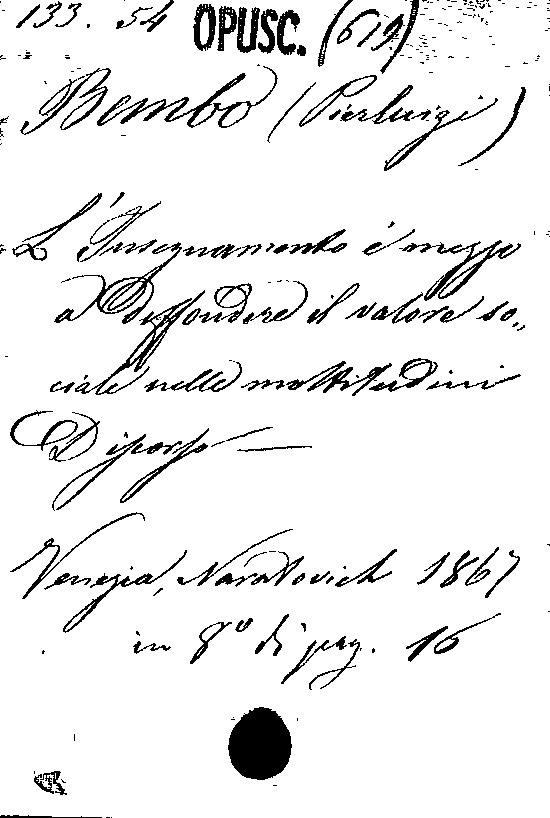 133. 54 OPUSC. (619)
Bembo (Pierluigi)
L'Insegnamento è mezzo
a Diffondere il valore so„
ciale nelle moltitudini
Discorso —
Venezia, Naratovich 1867
in 8º di pag. 16